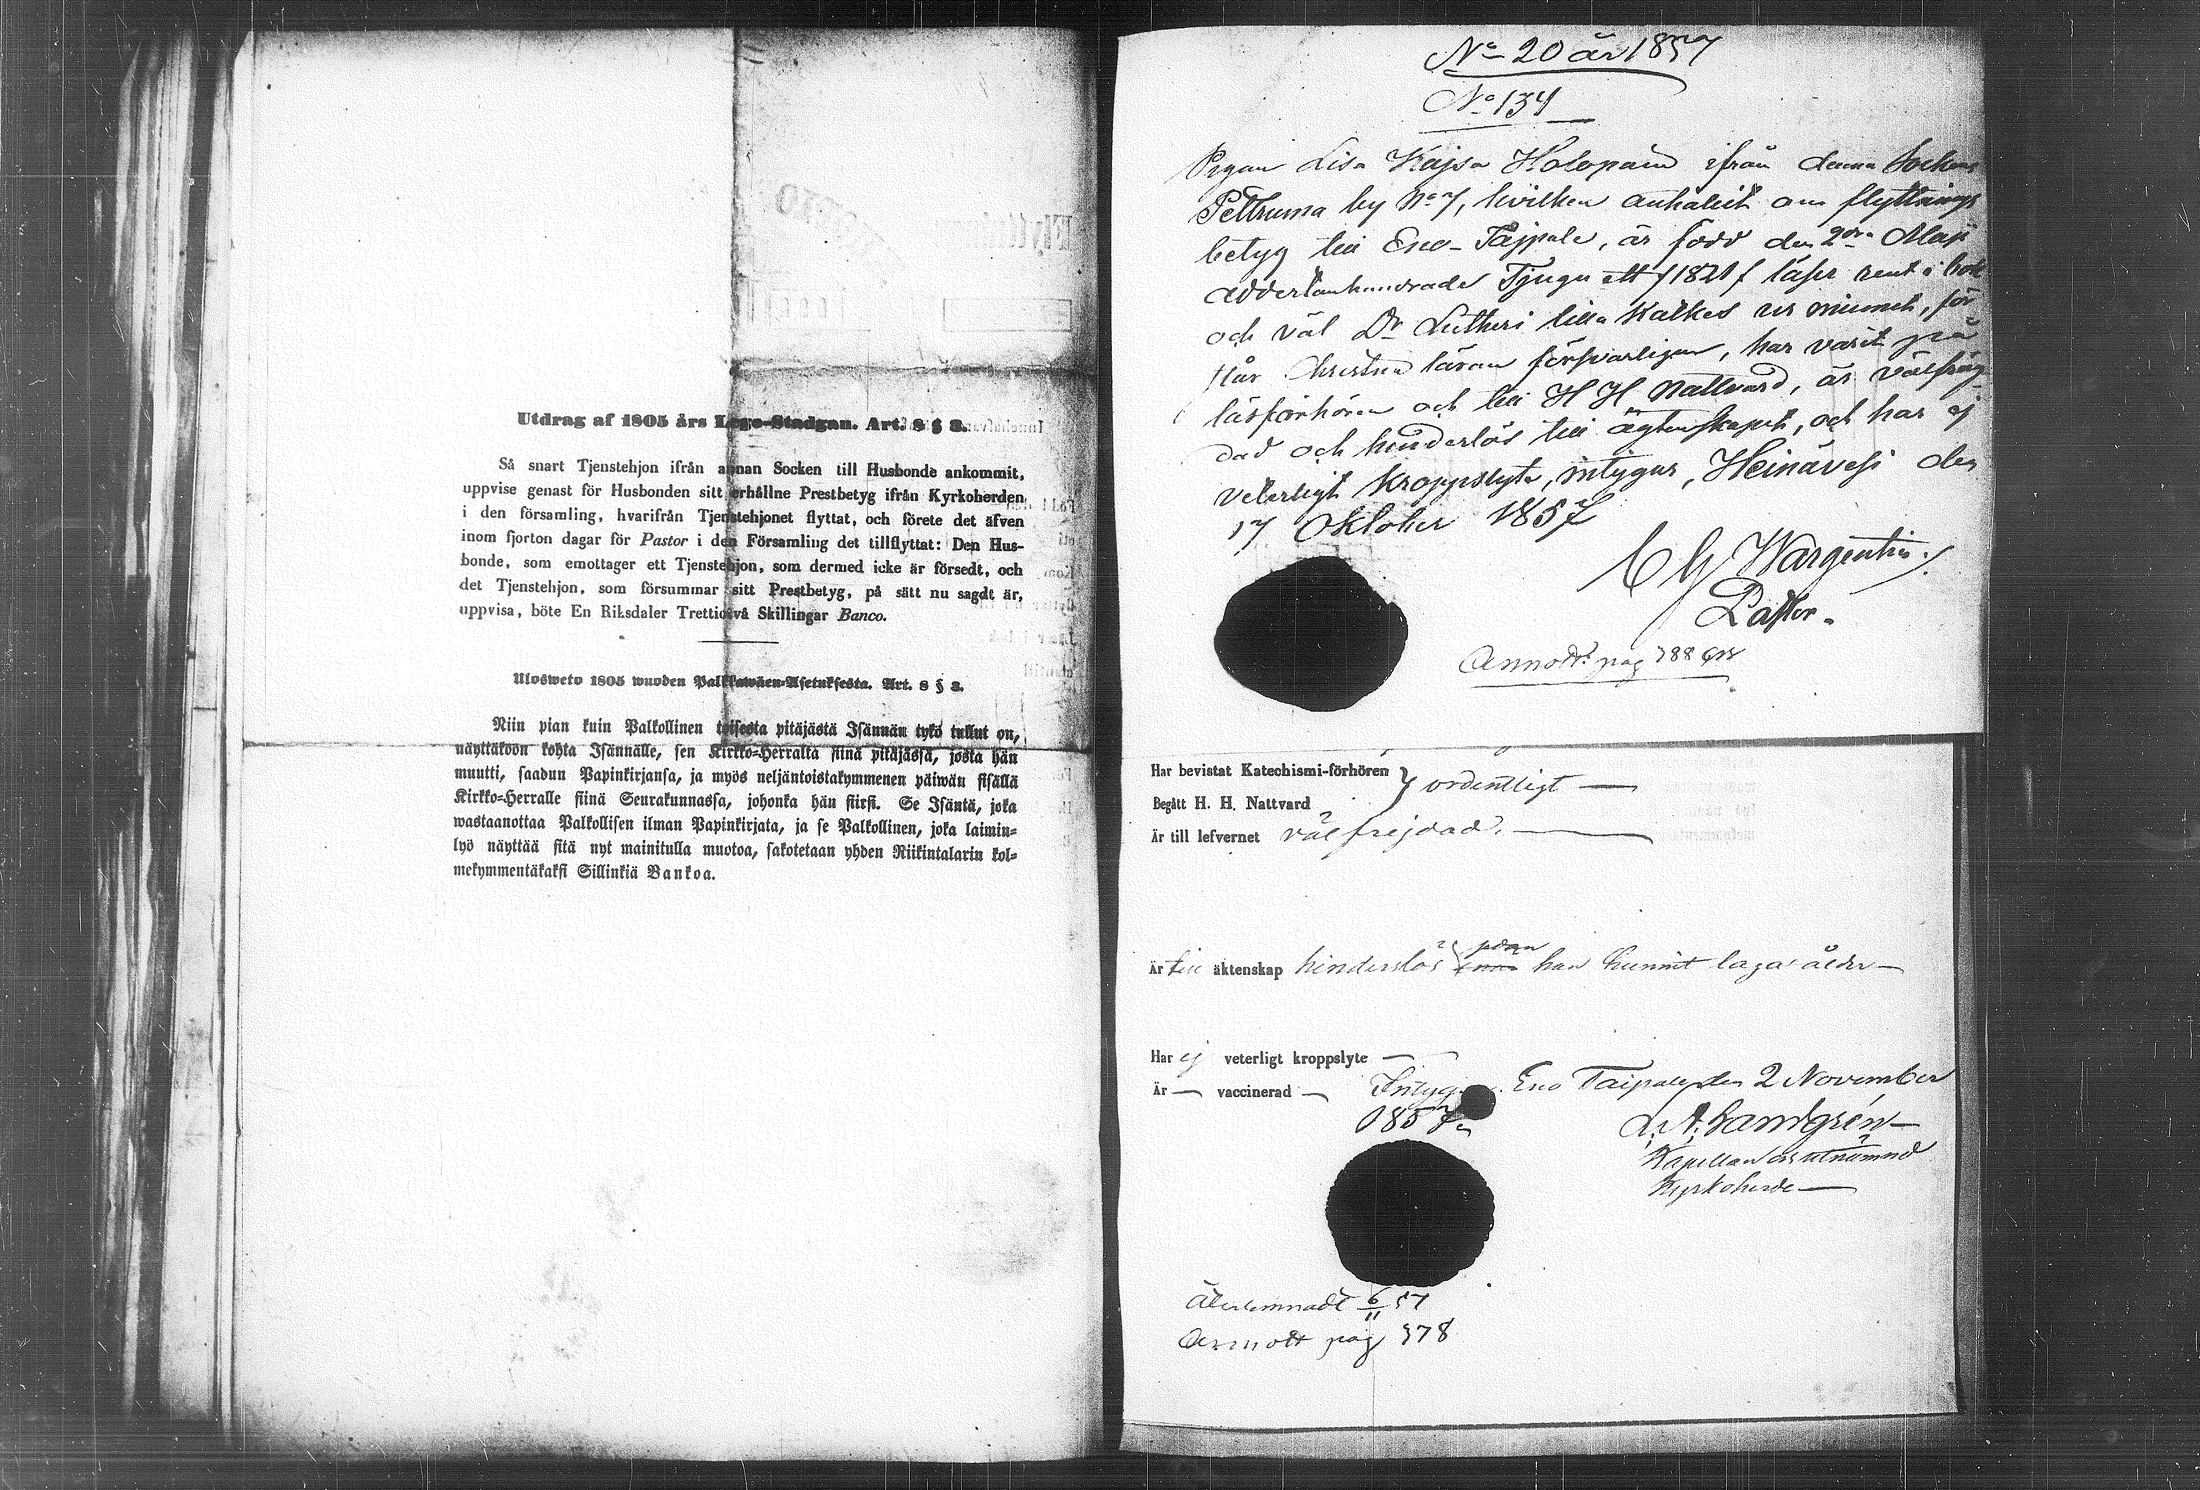 Utdrag af 1805 års Lego-Stadgan. Art. 8 § 3.
Så snart Tjenstehjon ifrån annan Socken till Husbonde ankommit,
uppvise genast för Husbonden sitt erhållne Prestbetyg ifrån Kyrkoherden
i den församling, hvarifrån Tjenstehjonet flyttat, och förete det äfven
inom fjorton dagar för Pastor i den Församling det tillflyttat: Den Hus-
bonde, som emottager ett Tjenstehjon, som dermed icke är försedt, och
det Tjenstehjon, som försummar sitt Prestbetyg, på sätt nu sagdt är,
uppvisa, böte En Riksdaler Trettiotvå Skillingar Banco.
Ulosweto 1805 wuoden Palkkawäen-Asetuksesta. Art. 8 § 3.
Niin pian kuin Palkollinen toisesta pitäjästä Isännän tykö tullut on,
näyttäköön kohta Isännälle, sen Kirkko-Herralta siinä pitäjässä, josta hän
muutti, saadun Papinkirjansa, ja myös neljäntoistakymmenen päiwän sisällä
Kirkko-Herralle siinä Seurakunnassa, johonka hän siirsi. Se Isäntä, joka
wastaanottaa Palkollisen ilman Papinkirjata, ja se Palkollinen, joka laimin-
lyö näyttää sitä nyt mainitulla muotoa, sakotetaan yhden Riikintalarin kol-
mekymmentäkaksi Sillinkiä Bankoa.
No 20 år 1857
No 134
Pigan Lisa Kajsa Holopain ifrån denna Sockens
Petruma by No 7, hvilken anhållit om flyttnings
betyg till Eno-Tajpale, är född den 2dra Maji
Addertonhundrade Tjugu ett /1821/ läser rent i bok
och väl Dr Lutheri lilla Katkes ur minnet, för-
står Christna läran försvarligen, har varit på
läsförhören och till H H Nattvard, är välfräj-
dad och hinderlös till ägtenskapet, och har ej
veterligt kroppslyte, intygar, Heinävesi den
17 Oktober 1857
C G Wargentin.
Pastor.
Annot. pag 788
Har bevistat Katechismi-förhören } ordentligt —
Begått H. H. Nattvard
Är till lefvernet välfrejdad. —
Är till äktenskap hinderslös sedan han hunnit laga ålder —
Har ej veterligt kroppslyte —
Är — vaccinerad — Intyga. Eno Taipale den 2 November
1857
A. Sandgrén —
Kapellan utnämnd
Kyrkoherde —
Återlemnadt 6/11 57
Annott pag 378